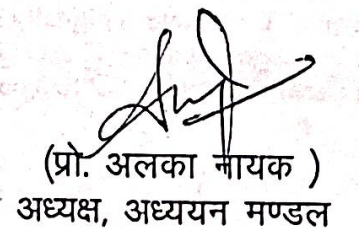 (प्रो. अलका नायक )
अध्यक्ष, अध्ययन मण्डल